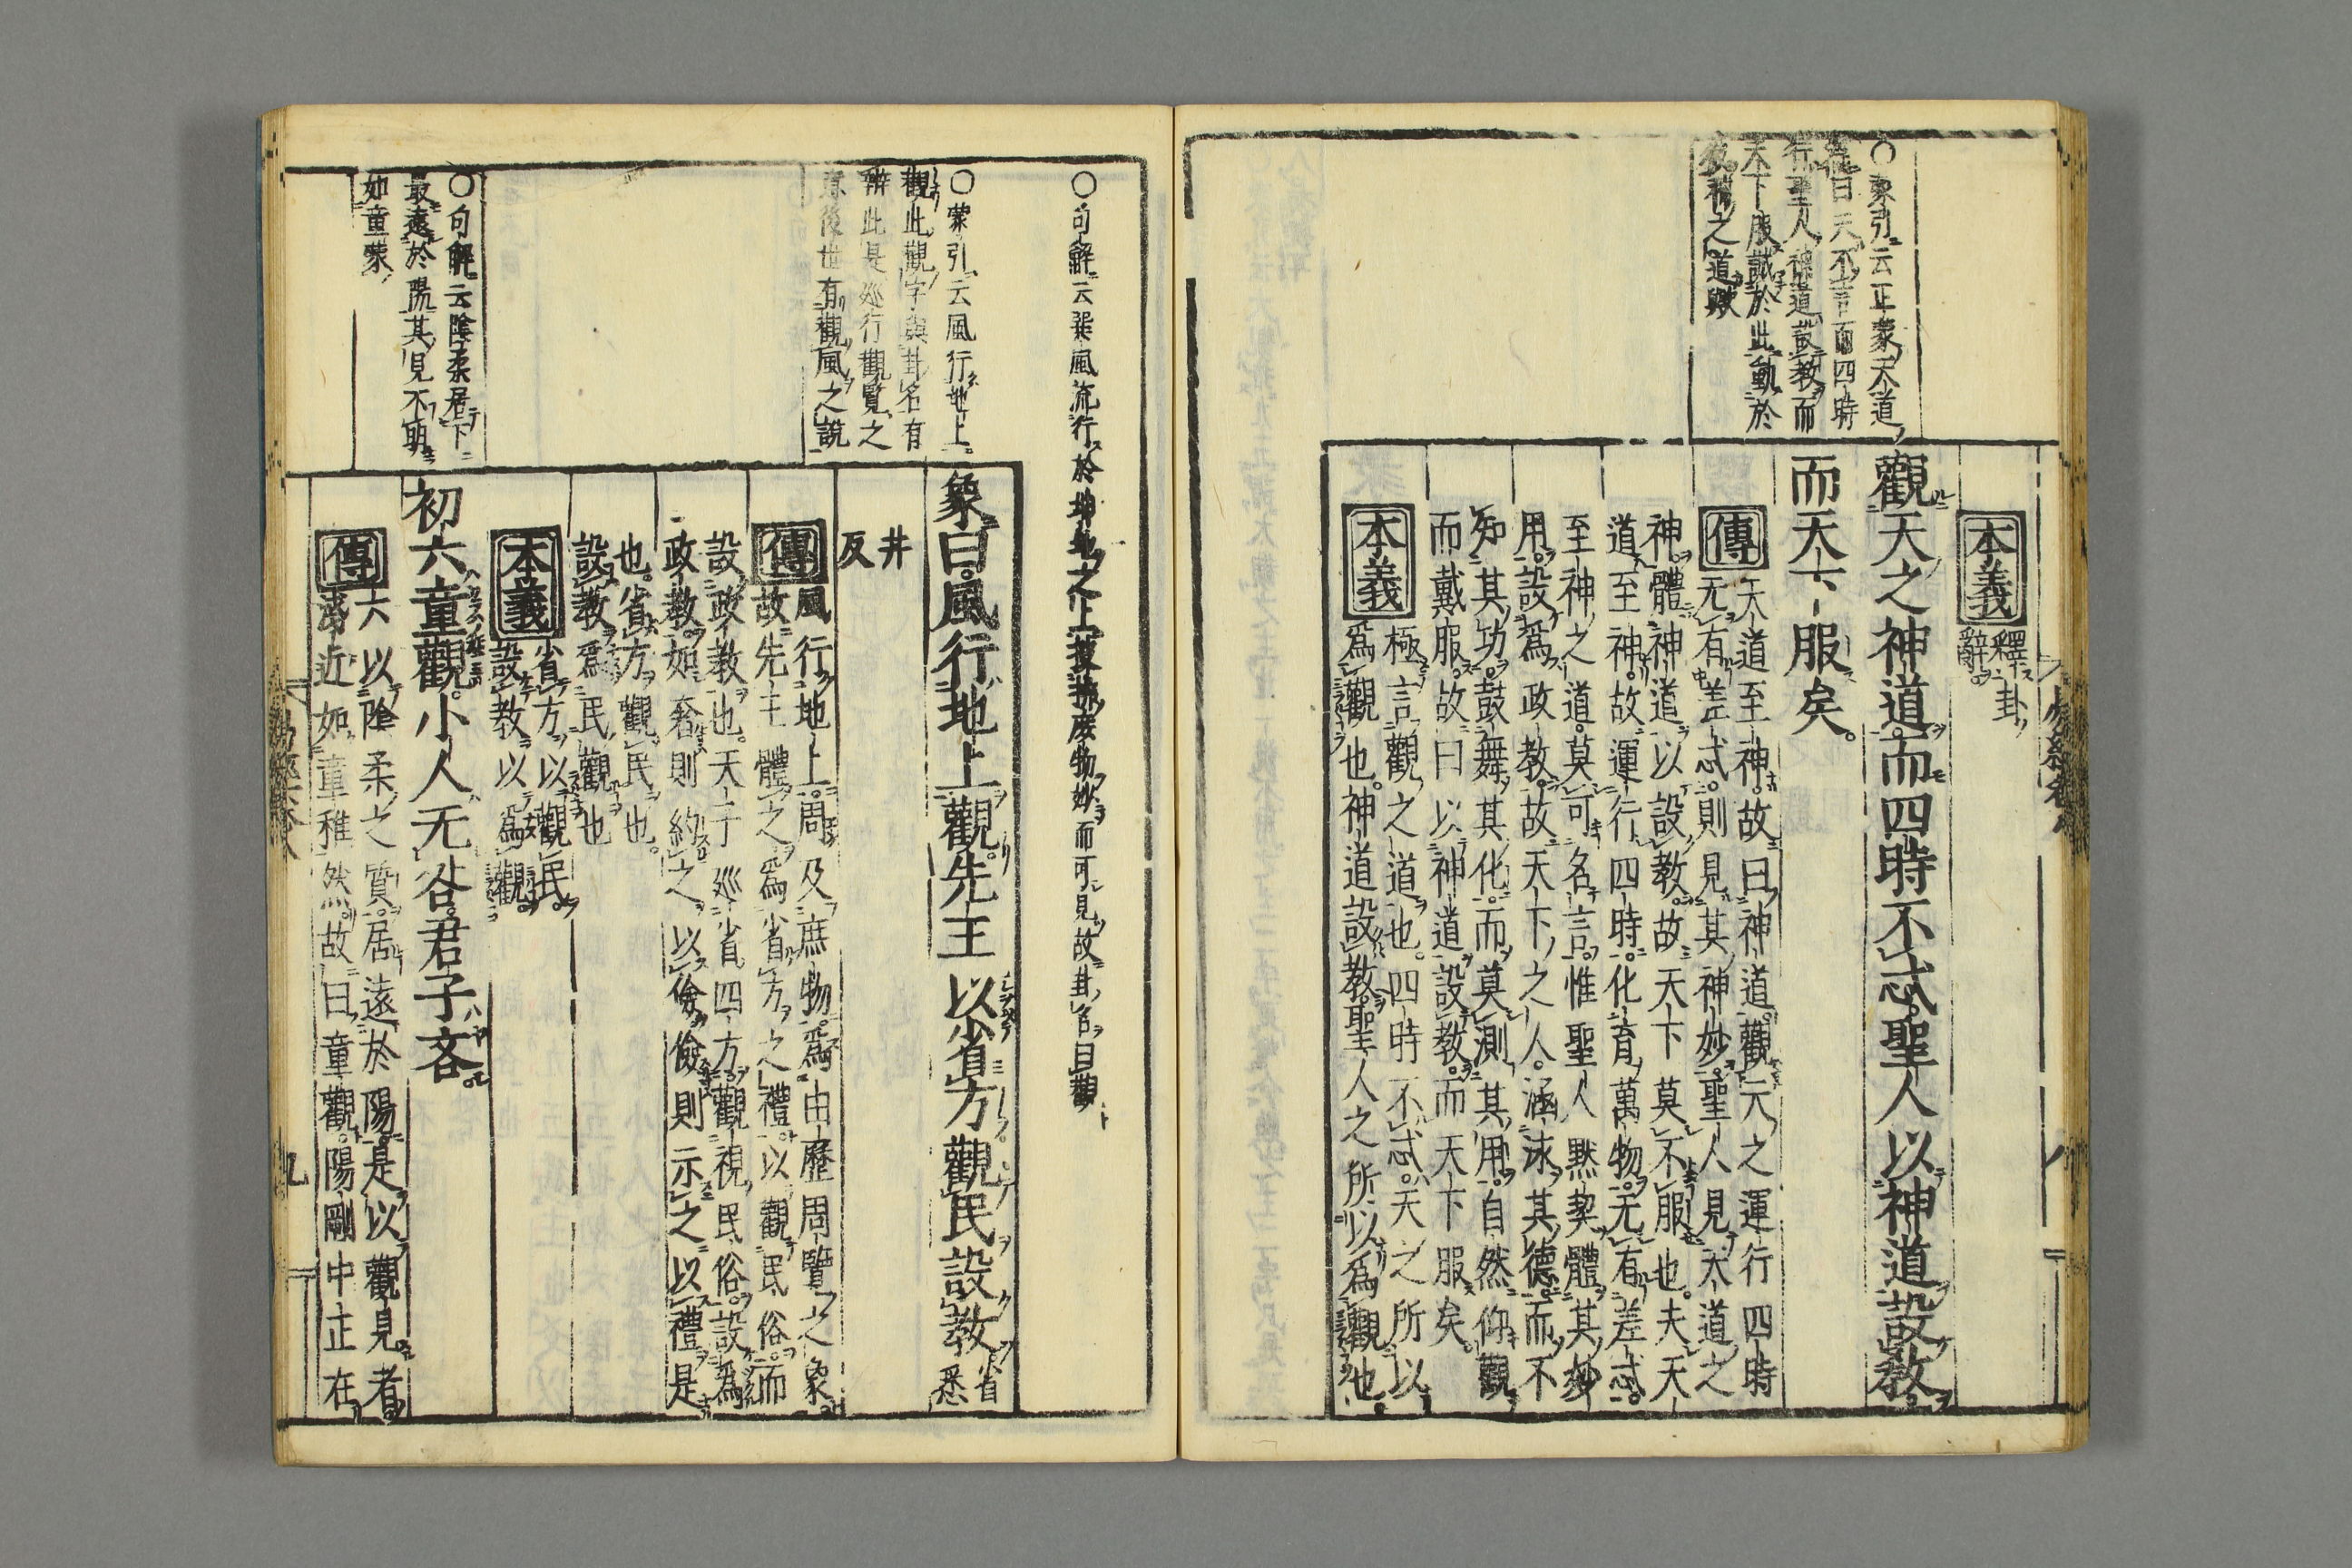 ○蒙引云正蒙天道
曰天不言而四時
行聖人神道設教而
天下服誠於此動於
彼神之道歟
本義
釋卦
辭
觀天之神道而四時不忒聖人以神道設教
而天下服矣
傳
天道至神故曰神道觀天之運行四時
无有差忒則見其神妙聖人見天道之
神體神道以設教故天下莫不服也夫天
道至神故運行四時化育萬物无有差忒
至神之道莫可名言惟聖人默契體其妙
用設爲政教故天下之人涵泳其德而不
知其功鼓舞其化而莫測其用自然仰觀
而戴服故曰以神道設教而天下服矣
本義
極言觀之道也四時不忒天之所以
爲觀也神道設教聖人之所以爲觀也
○句解云巽風流行於坤地之上披拂庶物妙而可見故卦名曰觀
○蒙引云風行地上
觀此觀字與卦名有
辨此是巡行觀覽之
意後世有觀風之說
象曰風行地上觀先王以省方觀民設教
省悉
井反
傳
風行地上周及庶物爲由歷周覽之象
故先王體之爲省方之禮以觀民俗而
設政教也天子巡省四方觀視民俗設爲
政教如奢則約之以儉儉則示之以禮是
也省方觀民也
設教爲民觀也
本義
省方以觀民
設教以爲觀
○句解云陰柔居下
最遠於陽其見不明
如童蒙
初六童觀小人无咎君子吝
傳
六以陰柔之質居遠於陽是以觀見者
淺近如童稚然故曰童觀陽剛中正在
九